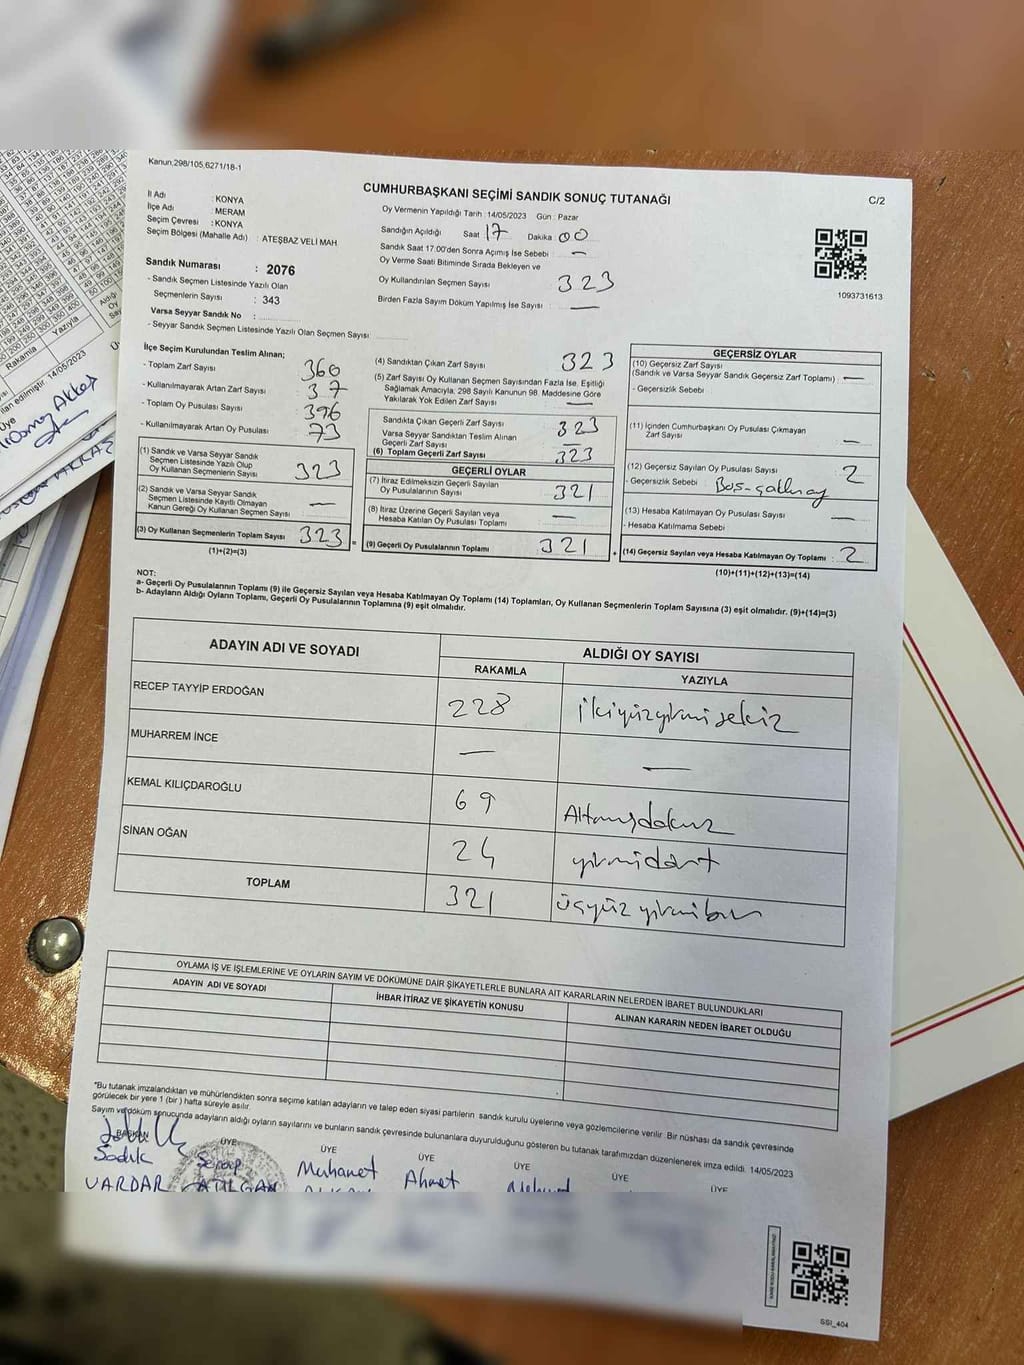 Kanun,298/105,6271/18-1
CUMHURBAŞKANI SEÇİMİ SANDIK SONUÇ TUTANAĞI
C/2
İl Adı : KONYA
İlçe Adı : MERAM
Seçim Çevresi : KONYA
Seçim Bölgesi (Mahalle Adı) : ATEŞBAZ VELİ MAH
Oy Vermenin Yapıldığı Tarih :14/05/2023 Gün : Pazar
Sandığın Açıldığı Saat 17 Dakika : 00
Sandık Saat 17:00'den Sonra Açımış İse Sebebi : —
Oy Verme Saati Bitiminde Sırada Bekleyen ve
Oy Kullandırılan Seçmen Sayısı : 323
Birden Fazla Sayım Döküm Yapılmış İse Sayısı : —
1093731613
Sandık Numarası : 2076
- Sandık Seçmen Listesinde Yazılı Olan
Seçmenlerin Sayısı : 343
Varsa Seyyar Sandık No :
- Seyyar Sandık Seçmen Listesinde Yazılı Olan Seçmen Sayısı :
İlçe Seçim Kurulundan Teslim Alınan;
- Toplam Zarf Sayısı : 360
- Kullanılmayarak Artan Zarf Sayısı : 37
- Toplam Oy Pusulası Sayısı : 396
- Kullanılmayarak Artan Oy Pusulası : 73
(1) Sandık ve Varsa Seyyar Sandık
Seçmen Listesinde Yazılı Olup
Oy Kullanan Seçmenlerin Sayısı : 323
(2) Sandık ve Varsa Seyyar Sandık
Seçmen Listesinde Kayıtlı Olmayan
Kanun Gereği Oy Kullanan Seçmen Sayısı : —
(3) Oy Kullanan Seçmenlerin Toplam Sayısı : 323
(1)+(2)=(3)
(4) Sandıktan Çıkan Zarf Sayısı : 323
(5) Zarf Sayısı Oy Kullanan Seçmen Sayısından Fazla İse, Eşitliği
Sağlamak Amacıyla, 298 Sayılı Kanunun 98. Maddesine Göre
Yakılarak Yok Edilen Zarf Sayısı : —
Sandıkta Çıkan Geçerli Zarf Sayısı : 323
Varsa Seyyar Sandıktan Teslim Alınan
Geçerli Zarf Sayısı : —
(6) Toplam Geçerli Zarf Sayısı : 323
GEÇERLİ OYLAR
(7) İtiraz Edilmeksizin Geçerli Sayılan
Oy Pusulalarının Sayısı : 321
(8) İtiraz Üzerine Geçerli Sayılan veya
Hesaba Katılan Oy Pusulası Toplamı : —
(9) Geçerli Oy Pusulalarının Toplamı : 321
GEÇERSİZ OYLAR
(10) Geçersiz Zarf Sayısı
(Sandık ve Varsa Seyyar Sandık Geçersiz Zarf Toplamı) : —
- Geçersizlik Sebebi :
(11) İçinden Cumhurbaşkanı Oy Pusulası Çıkmayan
Zarf Sayısı : —
(12) Geçersiz Sayılan Oy Pusulası Sayısı : 2
- Geçersizlik Sebebi :
(13) Hesaba Katılmayan Oy Pusulası Sayısı : —
- Hesaba Katılmama Sebebi :
(14) Geçersiz Sayılan veya Hesaba Katılmayan Oy Toplamı : 2
(10)+(11)+(12)+(13)=(14)
NOT:
a- Geçerli Oy Pusulalarının Toplamı (9) ile Geçersiz Sayılan veya Hesaba Katılmayan Oy Toplamı (14) Toplamları, Oy Kullanan Seçmenlerin Toplam Sayısına (3) eşit olmalıdır. (9)+(14)=(3)
b- Adayların Aldığı Oyların Toplamı, Geçerli Oy Pusulalarının Toplamına (9) eşit olmalıdır.
ADAYIN ADI VE SOYADI
ALDIĞI OY SAYISI
RAKAMLA YAZIYLA
RECEP TAYYİP ERDOĞAN 228 ikiyüzyirmisekiz
MUHARREM İNCE — —
KEMAL KILIÇDAROĞLU 69 Altmışdokuz
SİNAN OĞAN 24 yirmidört
TOPLAM 321 üçyüzyirmibir
OYLAMA İŞ VE İŞLEMLERİNE VE OYLARIN SAYIM VE DÖKÜMÜNE DAİR ŞİKAYETLERLE BUNLARA AİT KARARLARIN NELERDEN İBARET BULUNDUKLARI
ADAYIN ADI VE SOYADI İHBAR İTİRAZ VE ŞİKAYETİN KONUSU ALINAN KARARIN NEDEN İBARET OLDUĞU
*Bu tutanak imzalandıktan ve mühürlendikten sonra seçime katılan adayların ve talep eden siyasi partilerin sandık kurulu üyelerine veya gözlemcilerine verilir. Bir nüshası da sandık çevresinde
görülecek bir yere 1 (bir ) hafta süreyle asılır.
Sayım ve döküm sonucunda adayların aldığı oyların sayılarını ve bunların sandık çevresinde bulunanlara duyurulduğunu gösteren bu tutanak tarafımızdan düzenlenerek imza edildi. 14/05/2023
BAŞKAN ÜYE ÜYE ÜYE ÜYE ÜYE ÜYE
Sadık Serap Muhamet Ahmet Mehmet
VARDAR ATILGAN
SSI_404